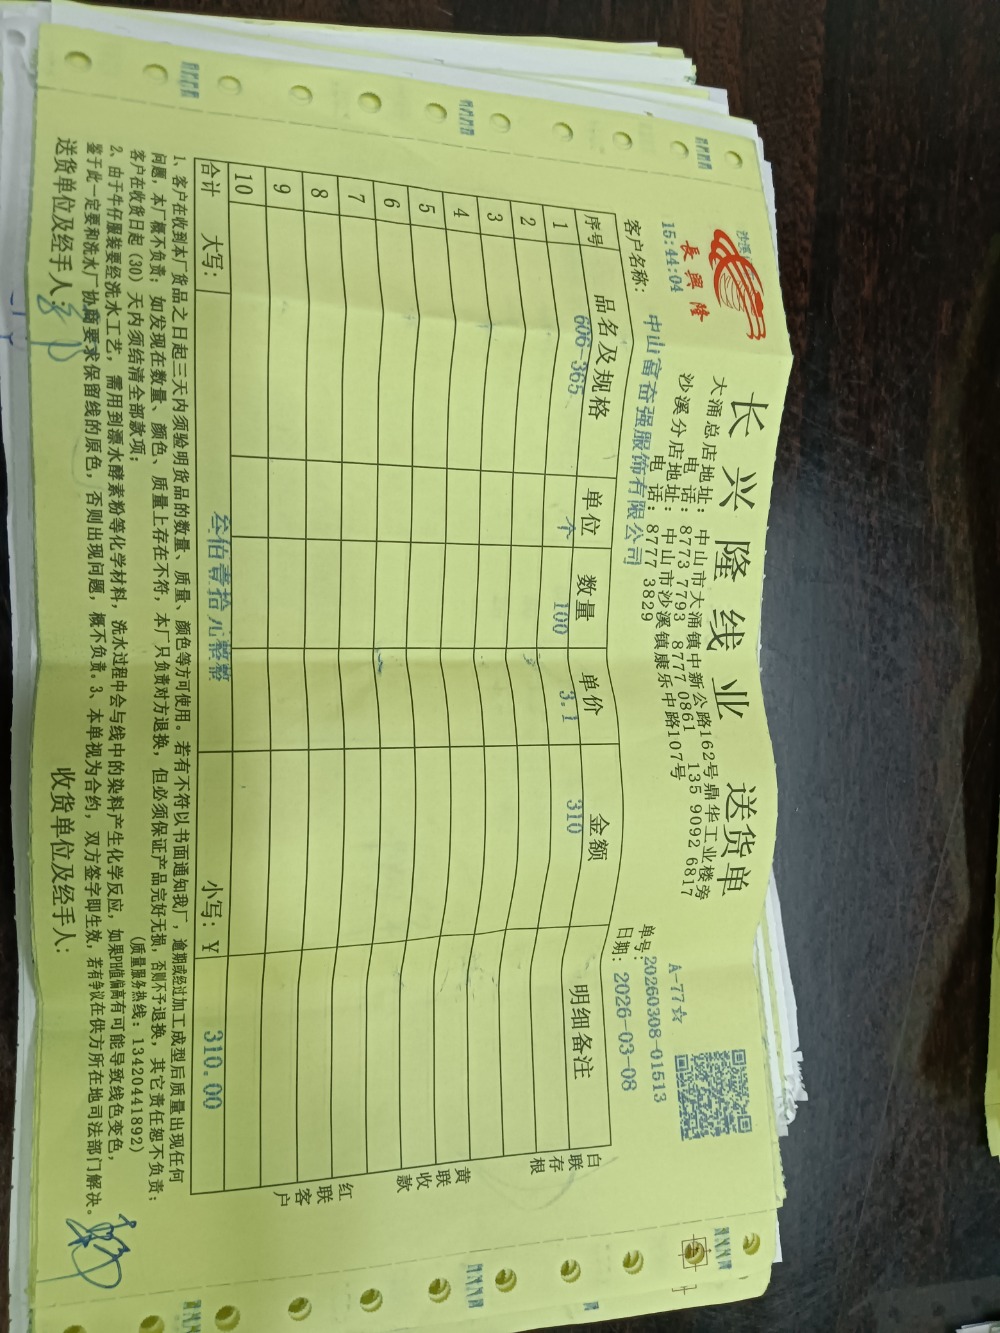 長興隆
15:44:04
长兴隆线业 送货单
大涌总店地址:中山市大涌镇中新公路162号鼎华工业楼旁
电 话:8773 7793 8777 0861 135 9092 6817
沙溪分店地址:中山市沙溪镇康乐中路107号
电 话:8777 3829
A-77☆
单号:20260308-01513
客户名称:中山富奇强服饰有限公司
日期:2026-03-08
序号 品名及规格 单位 数量 单价 金额 明细备注
1 606-365 个 100 3.1 310
2
3
4
5
6
7
8
9
10
合计 大写: 叁佰壹拾元整整 小写:¥ 310.00
白联存根
黄联收款
红联客户
1、客户在收到本厂货品之日起三天内须验明货品的数量、质量、颜色等方可使用。若有不符以书面通知我厂,逾期或经过加工成型后质量出现任何
问题,本厂概不负责;如发现在数量、颜色、质量上存在不符,本厂只负责对方退换,但必须保证产品完好无损,否则不予退换,其它责任恕不负责;
客户在收货日起(30)天内须结清全部款项; (质量服务热线:13420441892)
2、由于牛仔服装要经洗水工艺,需用到漂水酵素粉等化学材料,洗水过程中会与线中的染料产生化学反应,如果PH值偏高有可能导致线色变色,
鉴于此一定要和洗水厂协商要求保留线的原色,否则出现问题,概不负责。3、本单视为合约,双方签字即生效,若有争议在供方所在地司法部门解决。
送货单位及经手人: 收货单位及经手人: